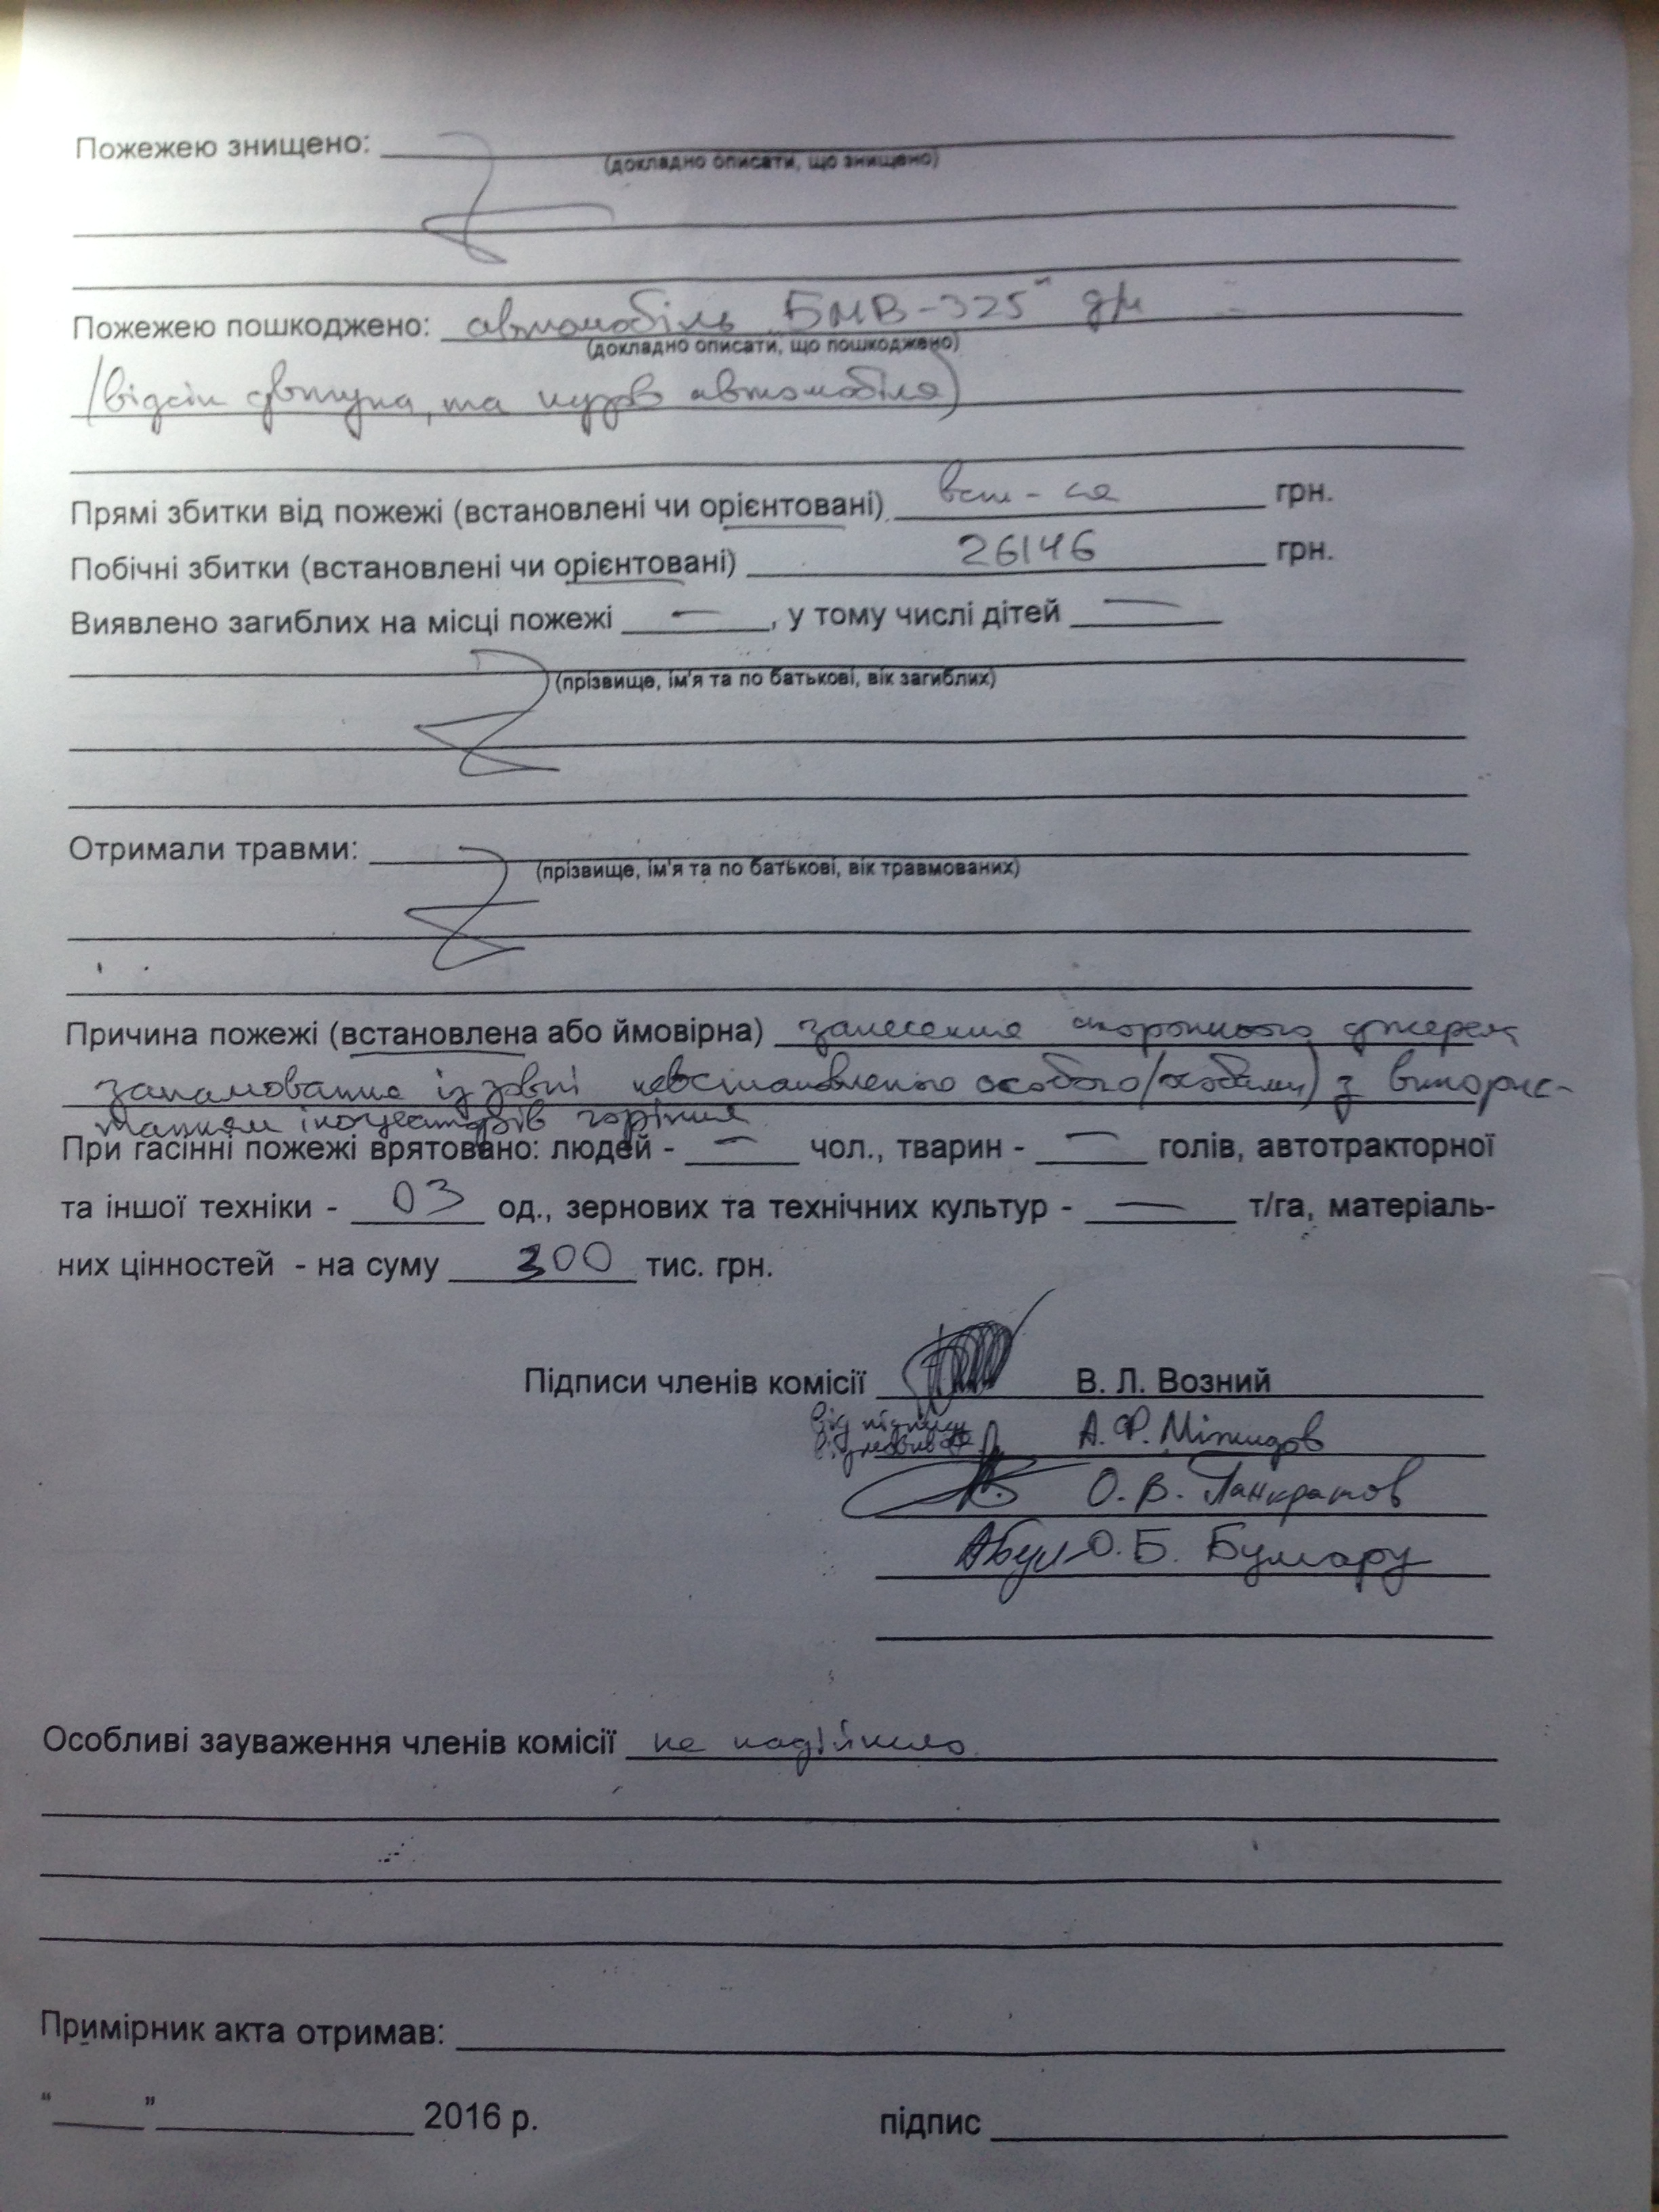 Пожежею знищено:
(докладно описати, що знищено)
Пожежею пошкоджено: автомобіль БМВ-325 д/н
(докладно описати, що пошкоджено)
(відсік двигуна, та кузов автомобіля)
Прямі збитки від пожежі (встановлені чи орієнтовані) вст-ся грн.
Побічні збитки (встановлені чи орієнтовані) 26146 грн.
Виявлено загиблих на місці пожежі —, у тому числі дітей —
(прізвище, ім'я та по батькові, вік загиблих)
Отримали травми:
(прізвище, ім'я та по батькові, вік травмованих)
Причина пожежі (встановлена або ймовірна) занесення стороннього джерела
запалювання із зовні невстановленою особою/особами) з викорис-
танням ініціаторів горіння
При гасінні пожежі врятовано: людей - — чол., тварин - — голів, автотракторної
та іншої техніки - 03 од., зернових та технічних культур - — т/га, матеріаль-
них цінностей - на суму 300 тис. грн.
Підписи членів комісії В. Л. Возний
від підпису
відмовився А.Ф.
О.В. Панкратов
О.Б.
Особливі зауваження членів комісії не надійшло
Примірник акта отримав:
“ ” 2016 р. підпис